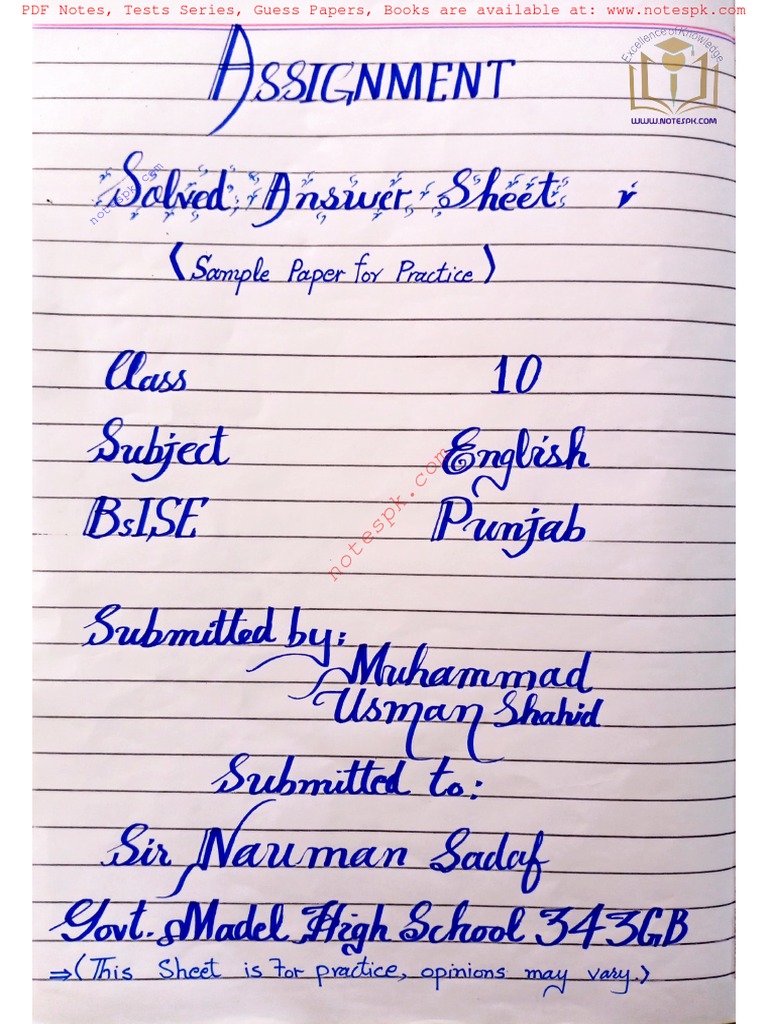 PDF Notes, Tests Series, Guess Papers, Books are available at: www.notespk.com
Excellence of Knowledge
WWW.NOTESPK.COM
ASSIGNMENT
Solved Answer Sheet
notespk.com
(Sample Paper for Practice)
Class 10
Subject English
BsISE Punjab
notespk.com
Submitted by:
Muhammad
Usman Shahid
Submitted to:
Sir Nauman Sadaf
Govt. Madel High School 343GB
⇒(This Sheet is for practice, opinions may vary.)